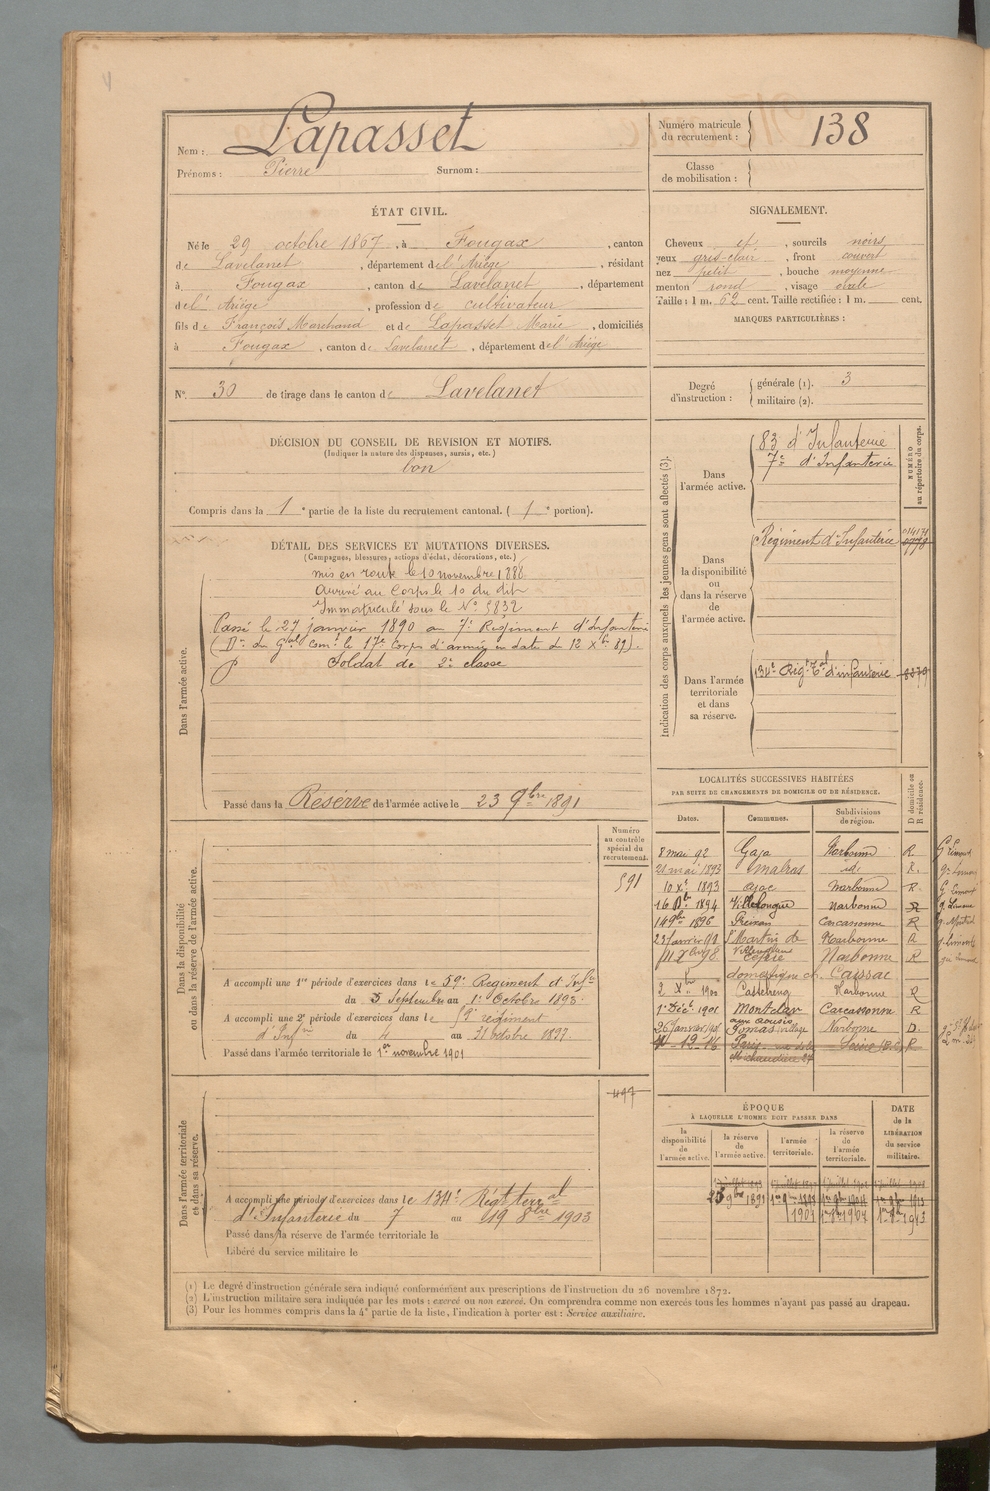 Nom : Lapasset
Prénoms : Pierre Surnom :
Numéro matricule du recrutement : 138
Classe de mobilisation :
ÉTAT CIVIL.
Né le 29 octobre 1867, à Fougax, canton
de Lavelanet, département de l'Ariège, résidant
à Fougax, canton de Lavelanet, département
de l'Ariège, profession de cultivateur
fils de François Marchand et de Lapasset Marie, domiciliés
à Fougax, canton de Lavelanet, département de l'Ariège
SIGNALEMENT.
Cheveux et, sourcils noirs
yeux gris-clair, front couvert
nez petit, bouche moyenne
menton rond, visage ovale
Taille : 1 m. 62 cent. Taille rectifiée : 1 m. cent.
MARQUES PARTICULIÈRES :
N° 30 de tirage dans le canton de Lavelanet
Degré d'instruction : générale (1). 3
militaire (2).
DÉCISION DU CONSEIL DE REVISION ET MOTIFS.
(Indiquer la nature des dispenses, sursis, etc.)
bon
Compris dans la 1e partie de la liste du recrutement cantonal. ( 1e portion).
DÉTAIL DES SERVICES ET MUTATIONS DIVERSES.
(Campagnes, blessures, actions d'éclat, décorations, etc.)
Dans l'armée active.
mis en route le 10 novembre 1888
Arrivé au Corps le 10 du dit
Immatriculé sous le N° 5832
Passé le 27 janvier 1890 au 7e Régiment d'Infanterie
(Don du Gal comt le 17e Corps d'armée en date du 12 Xbre 89).
Soldat de 2e classe
Passé dans la Réserve de l'armée active le 23 9bre 1891
Indication des corps auxquels les jeunes gens sont affectés (3).
NUMÉRO au répertoire du corps.
Dans l'armée active.
83 d'Infanterie
7e d'Infanterie
Dans la disponibilité ou dans la réserve de l'armée active.
Régiment d'Infanterie
Dans l'armée territoriale et dans sa réserve.
134e Rigt Tal d'infanterie
Dans la disponibilité ou dans la réserve de l'armée active.
Numéro au contrôle spécial du recrutement.
591
A accompli une 1re période d'exercices dans le 59e Régiment d'Infie
du 5 Septembre au 1er Octobre 1893.
A accompli une 2e période d'exercices dans le 59e régiment
d'Infrie du 4 au 31 octobre 1897.
Passé dans l'armée territoriale le 1er novembre 1901
LOCALITÉS SUCCESSIVES HABITÉES
PAR SUITE DE CHANGEMENTS DE DOMICILE OU DE RÉSIDENCE.
Dates. Communes. Subdivisions de région. D domicile ou R résidence.
8 mai 92 Gaja Narbonne R
21 mai 1893 Malras id. R.
10 Xe 1893 ajac Narbonne R.
16 1894 Villelongue Narbonne R
14 9bre 1896 Carcassonne R
23 janvier St Martin de Villereglan Narbonne R
98 Narbonne R
2 Xbre 1900 Castelreng Narbonne R
1er Déc. 1901 Montclar Carcassonne R
26 janvier Pomas, village Narbonne D.
12 16 Paris rue de la Michaudière 27 Seine R
Dans l'armée territoriale et dans sa réserve.
497
A accompli une période d'exercices dans le 134e Régt terral
d'Infanterie du 7 au 19 8bre 1903
Passé dans la réserve de l'armée territoriale le
Libéré du service militaire le
ÉPOQUE
À LAQUELLE L'HOMME DOIT PASSER DANS
la disponibilité de l'armée active. la réserve de l'armée active. l'armée territoriale. la réserve de l'armée territoriale.
DATE de la LIBÉRATION du service militaire.
23 9bre 1891
(1) Le degré d'instruction générale sera indiqué conformément aux prescriptions de l'instruction du 26 novembre 1872.
(2) L'instruction militaire sera indiquée par les mots : exercé ou non exercé. On comprendra comme non exercés tous les hommes n'ayant pas passé au drapeau.
(3) Pour les hommes compris dans la 4e partie de la liste, l'indication à porter est : Service auxiliaire.